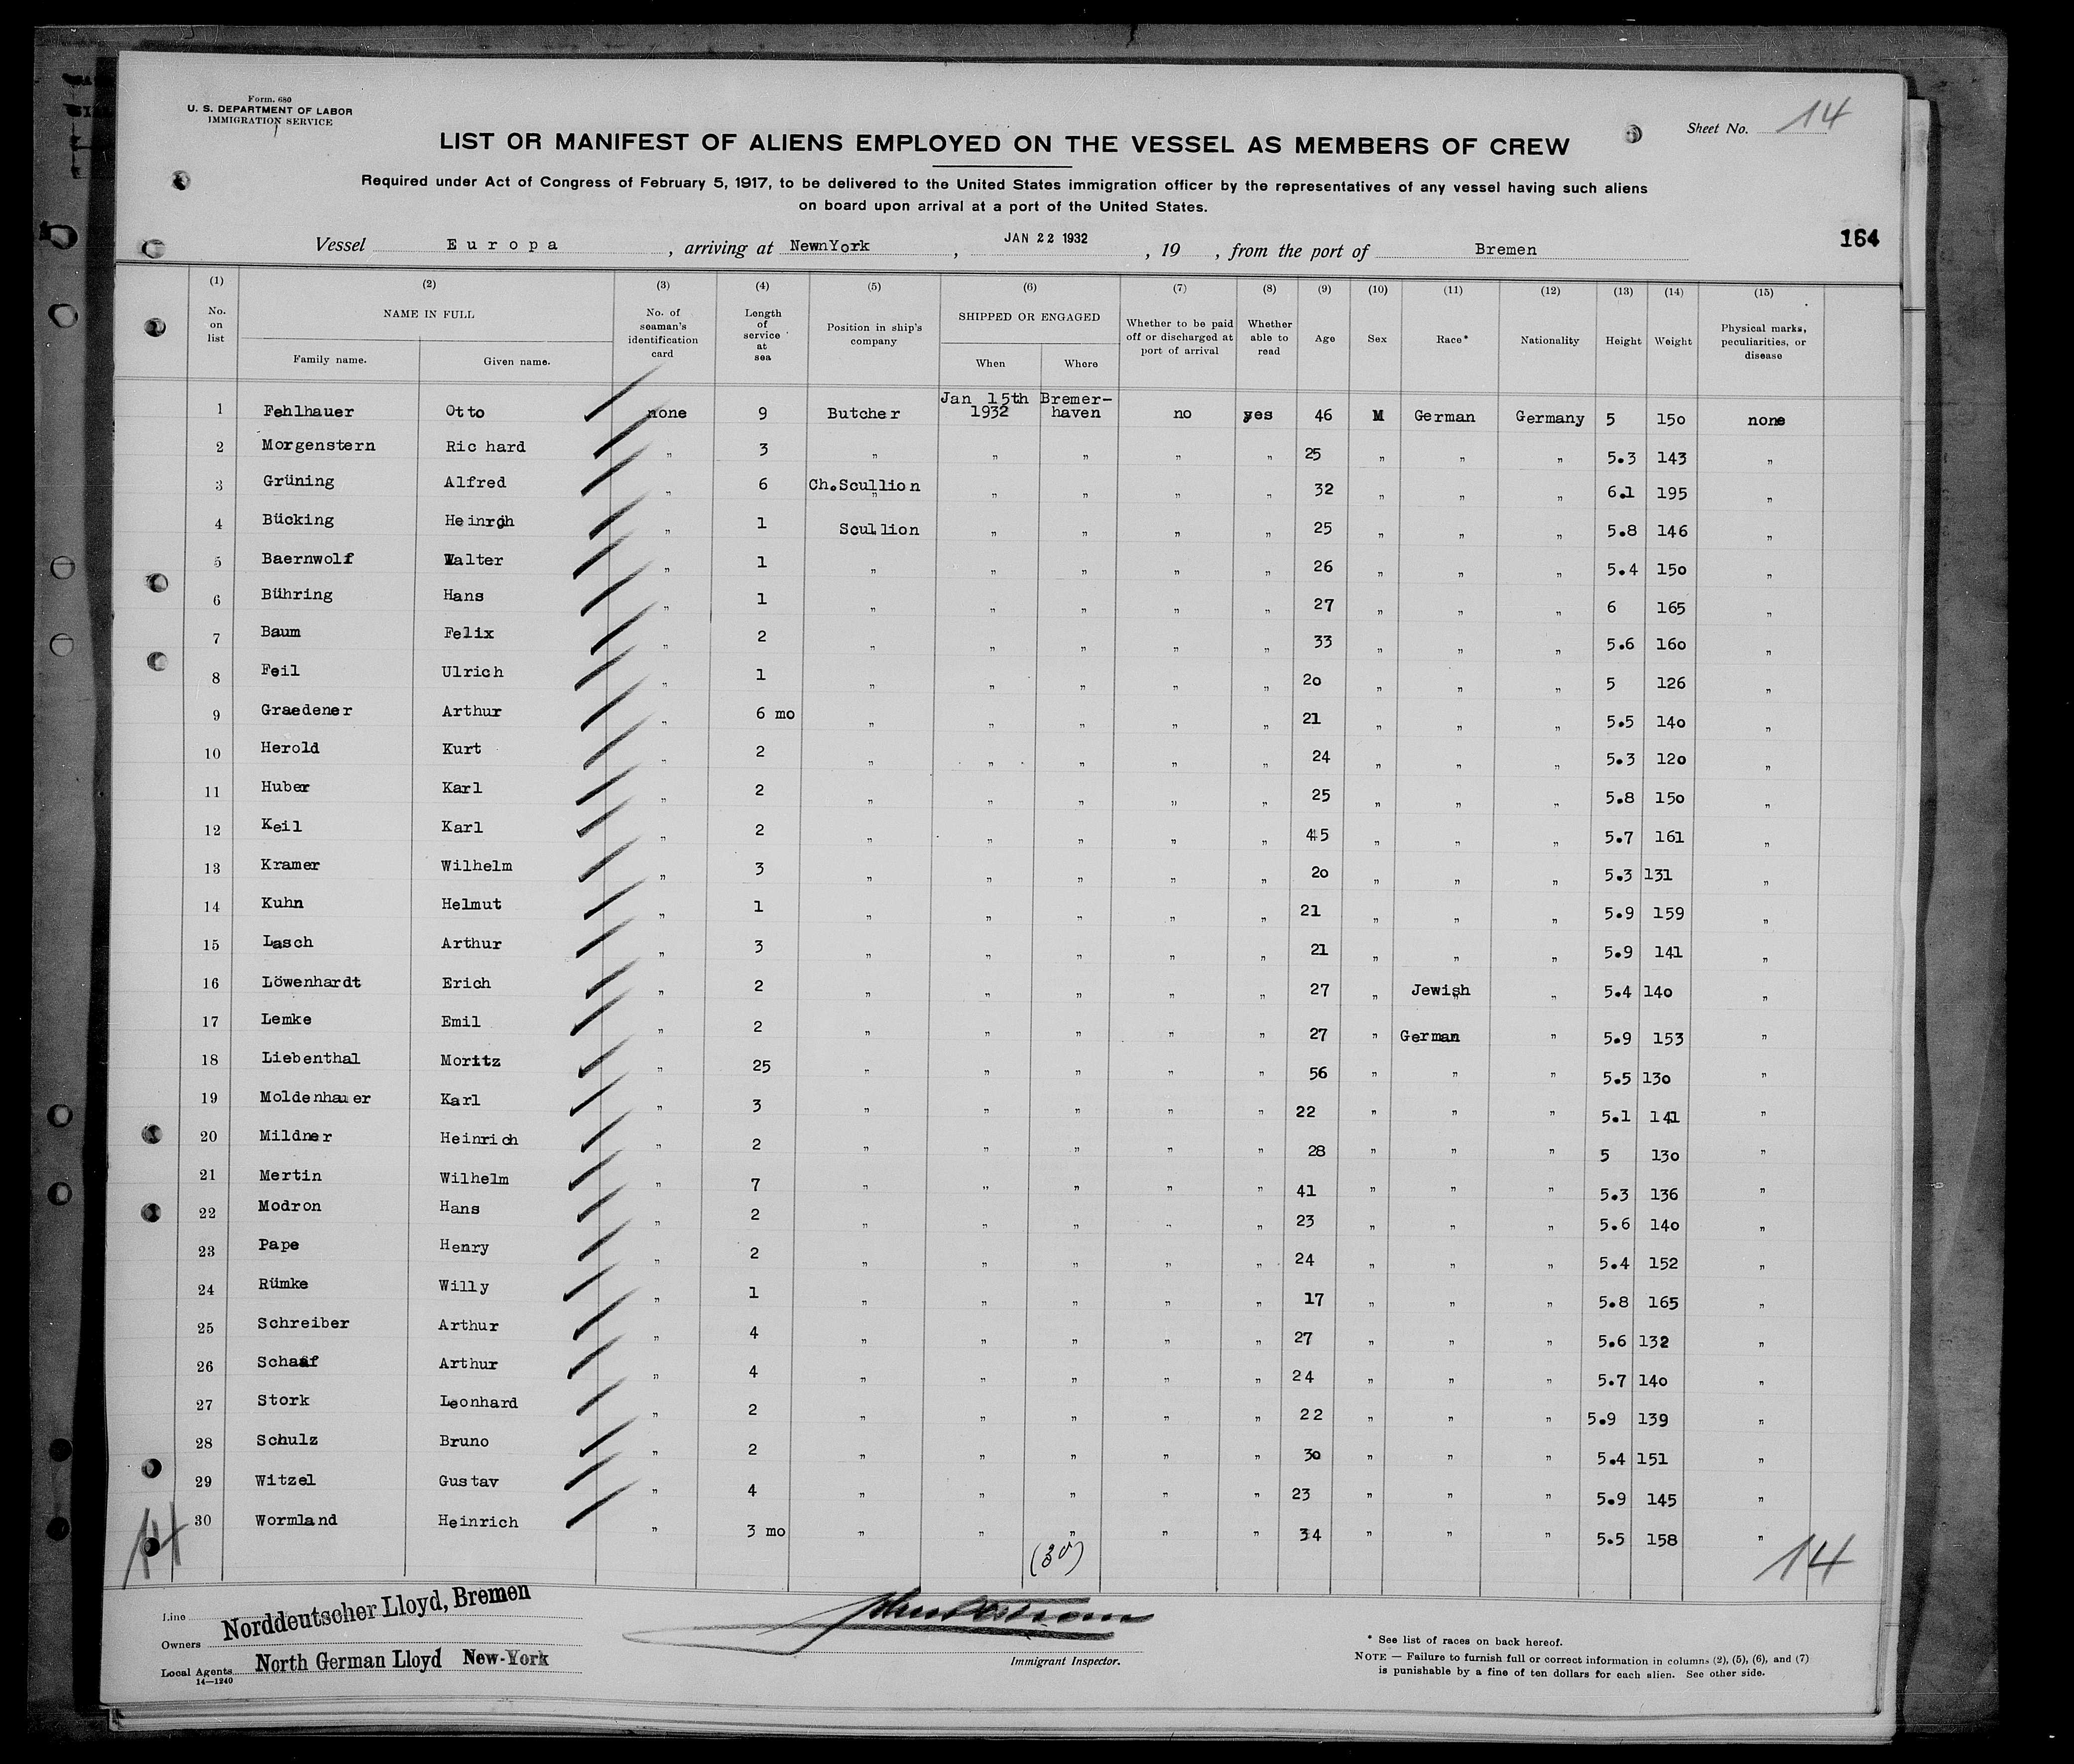 Form. 680
U. S. DEPARTMENT OF LABOR
IMMIGRATION SERVICE
Sheet No. 14
LIST OR MANIFEST OF ALIENS EMPLOYED ON THE VESSEL AS MEMBERS OF CREW
Required under Act of Congress of February 5, 1917, to be delivered to the United States immigration officer by the representatives of any vessel having such aliens
on board upon arrival at a port of the United States.
Vessel Europa , arriving at NewnYork , JAN 22 1932 , 19 , from the port of Bremen
164
(1) (2) (3) (4) (5) (6) (7) (8) (9) (10) (11) (12) (13) (14) (15)
No. on list NAME IN FULL Family name. Given name. No. of seaman's identification card Length of service at sea Position in ship's company SHIPPED OR ENGAGED When Where Whether to be paid off or discharged at port of arrival Whether able to read Age Sex Race* Nationality Height Weight Physical marks, peculiarities, or disease
1 Fehlhauer Otto none 9 Butcher Jan 15th 1932 Bremer-haven no yes 46 M German Germany 5 150 none
2 Morgenstern Ric hard " 3 " " " " " 25 " " " 5.3 143 "
3 Grüning Alfred " 6 Ch.Scullion " " " " 32 " " " 6.1 195 "
4 Bücking Heinrgh " 1 Scullion " " " " 25 " " " 5.8 146 "
5 Baernwolf Walter " 1 " " " " " 26 " " " 5.4 150 "
6 Bühring Hans " 1 " " " " " 27 " " " 6 165 "
7 Baum Felix " 2 " " " " " 33 " " " 5.6 160 "
8 Feil Ulrich " 1 " " " " " 20 " " " 5 126 "
9 Graedener Arthur " 6 mo " " " " " 21 " " " 5.5 140 "
10 Herold Kurt " 2 " " " " " 24 " " " 5.3 120 "
11 Huber Karl " 2 " " " " " 25 " " " 5.8 150 "
12 Keil Karl " 2 " " " " " 45 " " " 5.7 161 "
13 Kramer Wilhelm " 3 " " " " " 20 " " " 5.3 131 "
14 Kuhn Helmut " 1 " " " " " 21 " " " 5.9 159 "
15 Lasch Arthur " 3 " " " " " 21 " " " 5.9 141 "
16 Löwenhardt Erich " 2 " " " " " 27 " Jewish " 5.4 140 "
17 Lemke Emil " 2 " " " " " 27 " German " 5.9 153 "
18 Liebenthal Moritz " 25 " " " " " 56 " " " 5.5 130 "
19 Moldenhauer Karl " 3 " " " " " 22 " " " 5.1 141 "
20 Mildner Heinrich " 2 " " " " " 28 " " " 5 130 "
21 Mertin Wilhelm " 7 " " " " " 41 " " " 5.3 136 "
22 Modron Hans " 2 " " " " " 23 " " " 5.6 140 "
23 Pape Henry " 2 " " " " " 24 " " " 5.4 152 "
24 Rümke Willy " 1 " " " " " 17 " " " 5.8 165 "
25 Schreiber Arthur " 4 " " " " " 27 " " " 5.6 132 "
26 Schaaf Arthur " 4 " " " " " 24 " " " 5.7 140 "
27 Stork Leonhard " 2 " " " " " 22 " " " 5.9 139 "
28 Schulz Bruno " 2 " " " " " 30 " " " 5.4 151 "
29 Witzel Gustav " 4 " " " " " 23 " " " 5.9 145 "
30 Wormland Heinrich " 3 mo " " " " " 34 " " " 5.5 158 "
(30)
14
14
Line Norddeutscher Lloyd, Bremen
Owners
Local Agents North German Lloyd New-York
14—1240
Immigrant Inspector.
* See list of races on back hereof.
NOTE — Failure to furnish full or correct information in columns (2), (5), (6), and (7)
is punishable by a fine of ten dollars for each alien. See other side.